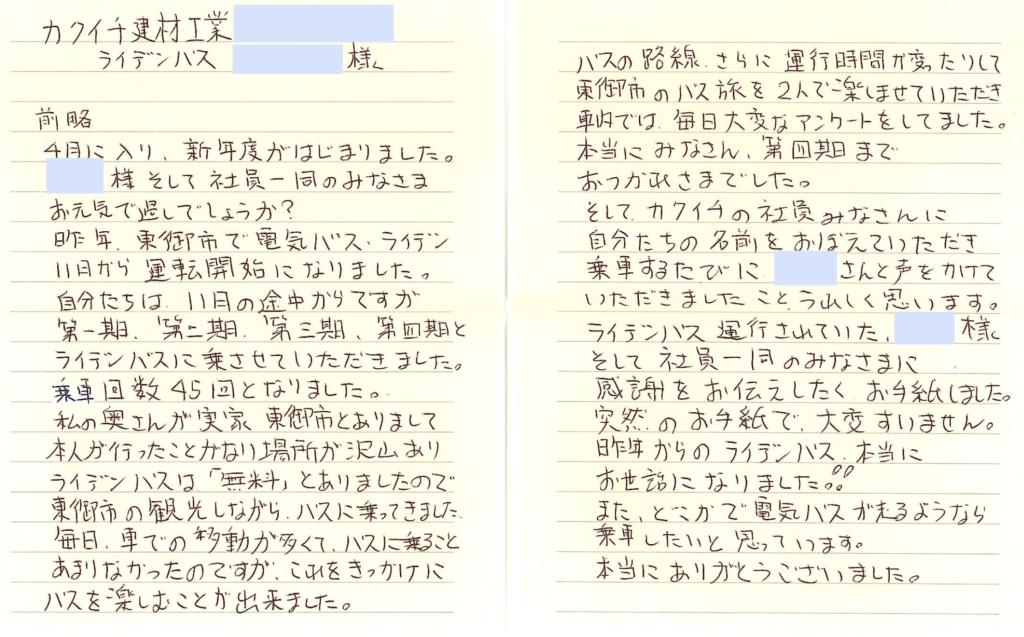 カクイチ建材工業
ライデンバス 様
前略
4月に入り、新年度がはじまりました。
様 そして 社員一同のみなさま
お元気で過しでしょうか?
昨年、東御市で電気バス・ライデン
11日から 運転開始になりました。
自分たちは、11月の途中からですが
第一期、第二期、第三期、第四期と
ライデンバスに乗させていただきました。
乗車回数45回となりました。
私の奥さんが実家 東御市とありまして
本人が行ったことがない場所が沢山あり
ライデンバスは、「無料」とありましたので
東御市の観光しながら、バスに乗ってきました
毎日、車での移動が多くて、バスに乗ること
あまりなかったのですが、これをきっかけに
バスを楽しむことが出来ました。
バスの路線、さらに 運行時間が変ったりして
東御市のバス旅を2人で楽しませていただき
車内では、毎日大変なアンケートをしてました。
本当に みなさん、第四期まで
おつかれさまでした。
そして、カクイチの社員みなさんに
自分たちの名前をおぼえていただき
乗車するたびに、 さんと声をかけて
いただきましたこと、うれしく思います。
ライデンバス 運行されていた、 様
そして 社員一同のみなさまに
感謝をお伝えしたく お手紙しました。
突然のお手紙で、大変すいません。
昨年からのライデンバス、本当に
お世話になりました!!
また、どこかで電気バスが走るようなら
乗車したいと思っています。
本当にありがとうございました。